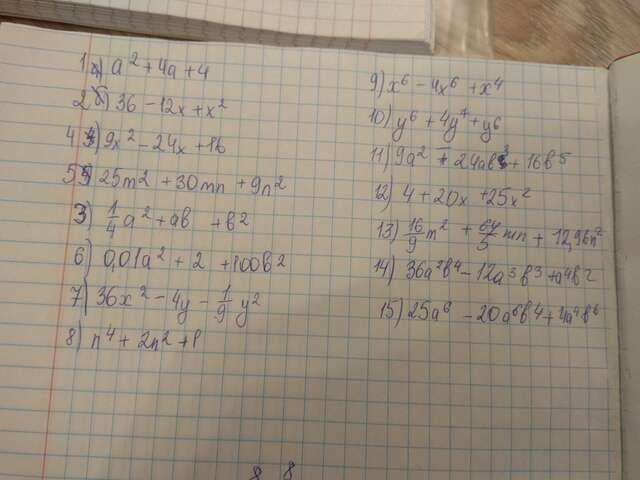 1) a² + 4a + 4
2) 36 - 12x + x²
4) 9x² - 24x + 16
5) 25m² + 30mn + 9n²
3) 1/4 a² + ab + b²
6) 0,01a² + 2 + 100b²
7) 36x² - 4y - 1/9 y²
8) n⁴ + 2n² + 1
9) x⁶ - 4x⁶ + x⁴
10) y⁶ + 4y⁷ + y⁶
11) 9a² + 24ab³ + 16b⁵
12) 4 + 20x + 25x²
13) 16/9 m² + 64/5 mn + 12,96n²
14) 36a²b⁴ - 12a³b³ + a⁴b²
15) 25a⁶ - 20a⁶b⁴ + 4a⁴b⁶
8 8